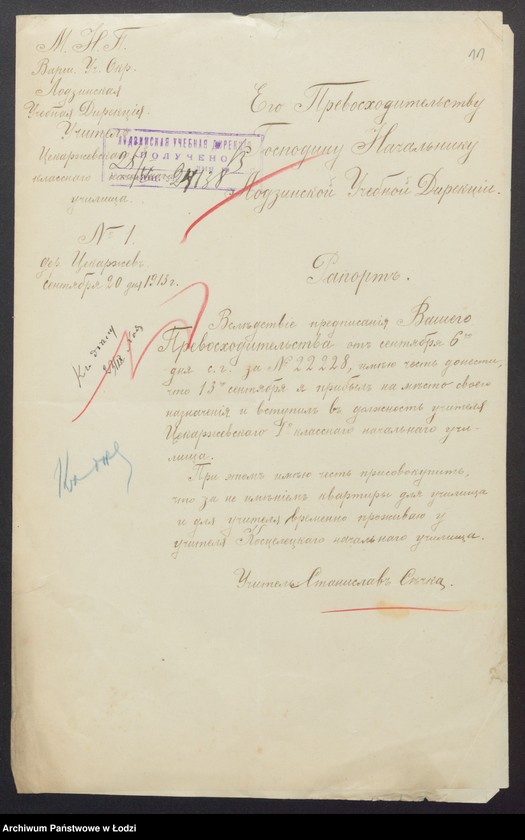 11
М. Н. П.
Варш. Уч. Окр.
Лодзинская
Учебная Дирекція.
Учителя
Цекаржевскаго
класснаго
училища.
ЛОДЗИНСКАЯ УЧЕБНАЯ ДИРЕКЦІЯ
ПОЛУЧЕНО
24138
№ 1.
дер. Цекаржевъ.
сентября 20 дня 1913 г.
Его Превосходительству
Господину Начальнику
Лодзинской Учебной Дирекціи.
Рапортъ.
Вслѣдствіе предписанія Вашего
Превосходительства отъ сентября 6го
дня с. г. за № 22228, имѣю честь донести,
что 13го сентября я прибылъ на мѣсто своего
назначенія и вступилъ въ должность учителя
Цекаржевскаго 1о класснаго начальнаго учи-
лища.
При этомъ имѣю честь присовокупить,
что за не имѣніемъ квартиры для училища
и для учителя временно проживаю у
учителя Косцелецкаго начальнаго училища.
Учитель Станиславъ Сѣчка.
Къ дѣлу
Archiwum Państwowe w Łodzi